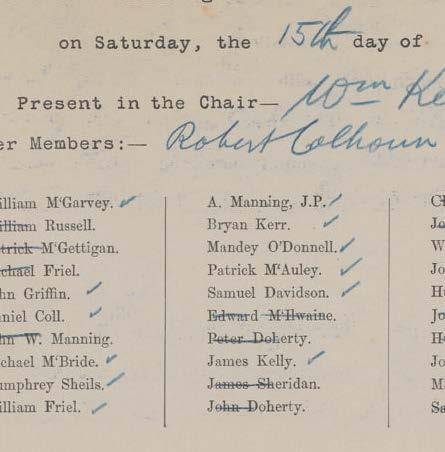 on Saturday, the 15th day of
Present in the Chair— Wm Ke
er Members:— Robert Colhoun
illiam M'Garvey.
illiam Russell.
trick M'Gettigan.
ichael Friel.
hn Griffin.
niel Coll.
hn W. Manning.
ichael M'Bride.
umphrey Sheils.
illiam Friel.
A. Manning, J.P.
Bryan Kerr.
Mandey O'Donnell.
Patrick M'Auley.
Samuel Davidson.
Edward M'Ilwaine.
Peter Doherty.
James Kelly.
James Sheridan.
John Doherty.
C
Jo
W
Jo
H
Jo
H
Jo
M
Sa